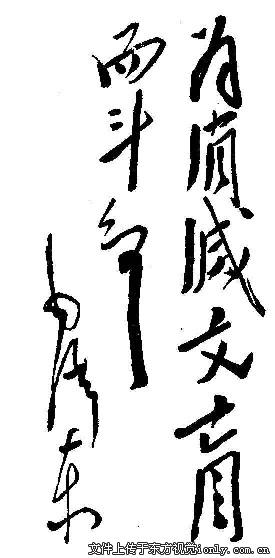 为消滅文盲
而斗争
毛泽东
文件上传于东方视觉ionly.com.cn